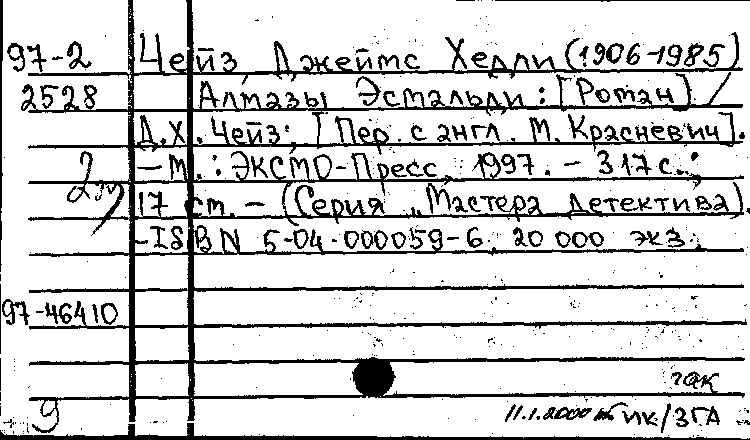 97-2 Чейз, Джеймс Хедли (1906-1985)
2528 Алмазы Эсмальди : [Роман] /
Д.Х. Чейз; [Пер. с англ. М. Красневич].
— М. : ЭКСМО-Пресс, 1997. — 317 с. ;
2эк 17 см. — (Серия „Мастера детектива).
-ISBN 5-04-000059-6, 20 000 экз.
97-46410
гак
9 11.1.2000 ик/ЗГА